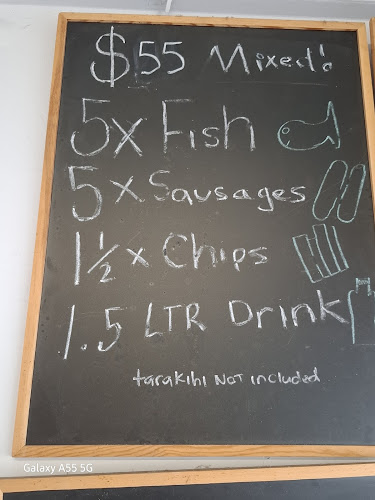 $55 Mixed!
5x Fish
5x Sausages
1½ x Chips
1.5 LTR Drink
tarakihi NOT included
Galaxy A55 5G